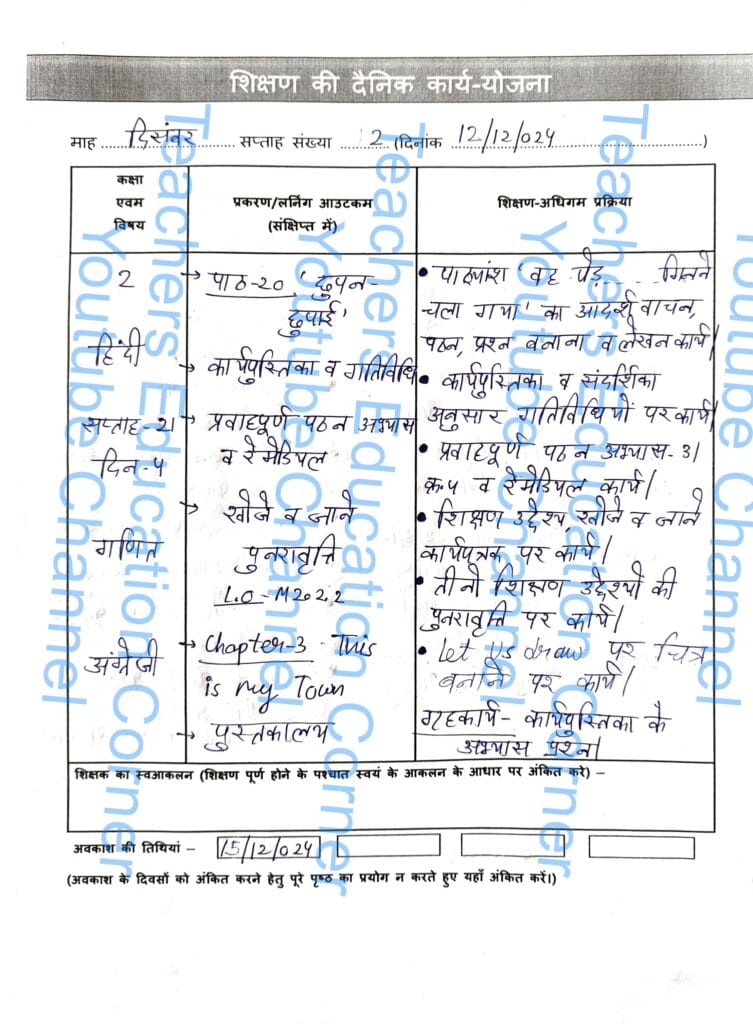 शिक्षण की दैनिक कार्य-योजना
माह दिसंबर सप्ताह संख्या 2 (दिनांक 12/12/024)
कक्षा एवम विषय
प्रकरण/लर्निंग आउटकम (संक्षिप्त में)
शिक्षण-अधिगम प्रक्रिया
2
हिंदी
सप्ताह-21
दिन-4
गणित
अंग्रेजी
→ पाठ-20 'छुपन-
छुपाई'
→ कार्यपुस्तिका व गतिविधि
→ प्रवाहपूर्ण पठन अभ्यास
व रेमेडियल
→ खोजे व जाने
पुनरावृत्ति
L.O-M202.2
→ Chapter-3 This
is my Town
→ पुस्तकालय
• पाठ्यांश 'वह पेड़ .... गिनने
चला गया' का आदर्श वाचन,
पठन, प्रश्न बनाना व लेखन कार्य।
• कार्यपुस्तिका व संदर्शिका
अनुसार गतिविधियों पर कार्य।
• प्रवाहपूर्ण पठन अभ्यास-3।
क्र-4 व रेमेडियल कार्य।
• शिक्षण उद्देश्य, खोजे व जाने
कार्यपत्रक पर कार्य।
• तीनो शिक्षण उद्देश्यों की
पुनरावृत्ति पर कार्य।
• Let us draw पर चित्र
बनाने पर कार्य।
गृहकार्य- कार्यपुस्तिका के
अभ्यास प्रश्न।
शिक्षक का स्वआकलन (शिक्षण पूर्ण होने के पश्चात स्वयं के आकलन के आधार पर अंकित करे) –
अवकाश की तिथियां – 15/12/024
(अवकाश के दिवसों को अंकित करने हेतु पूरे पृष्ठ का प्रयोग न करते हुए यहाँ अंकित करें।)
Teachers Education Corner
Youtube Channel
Teachers Education Corner
Youtube Channel